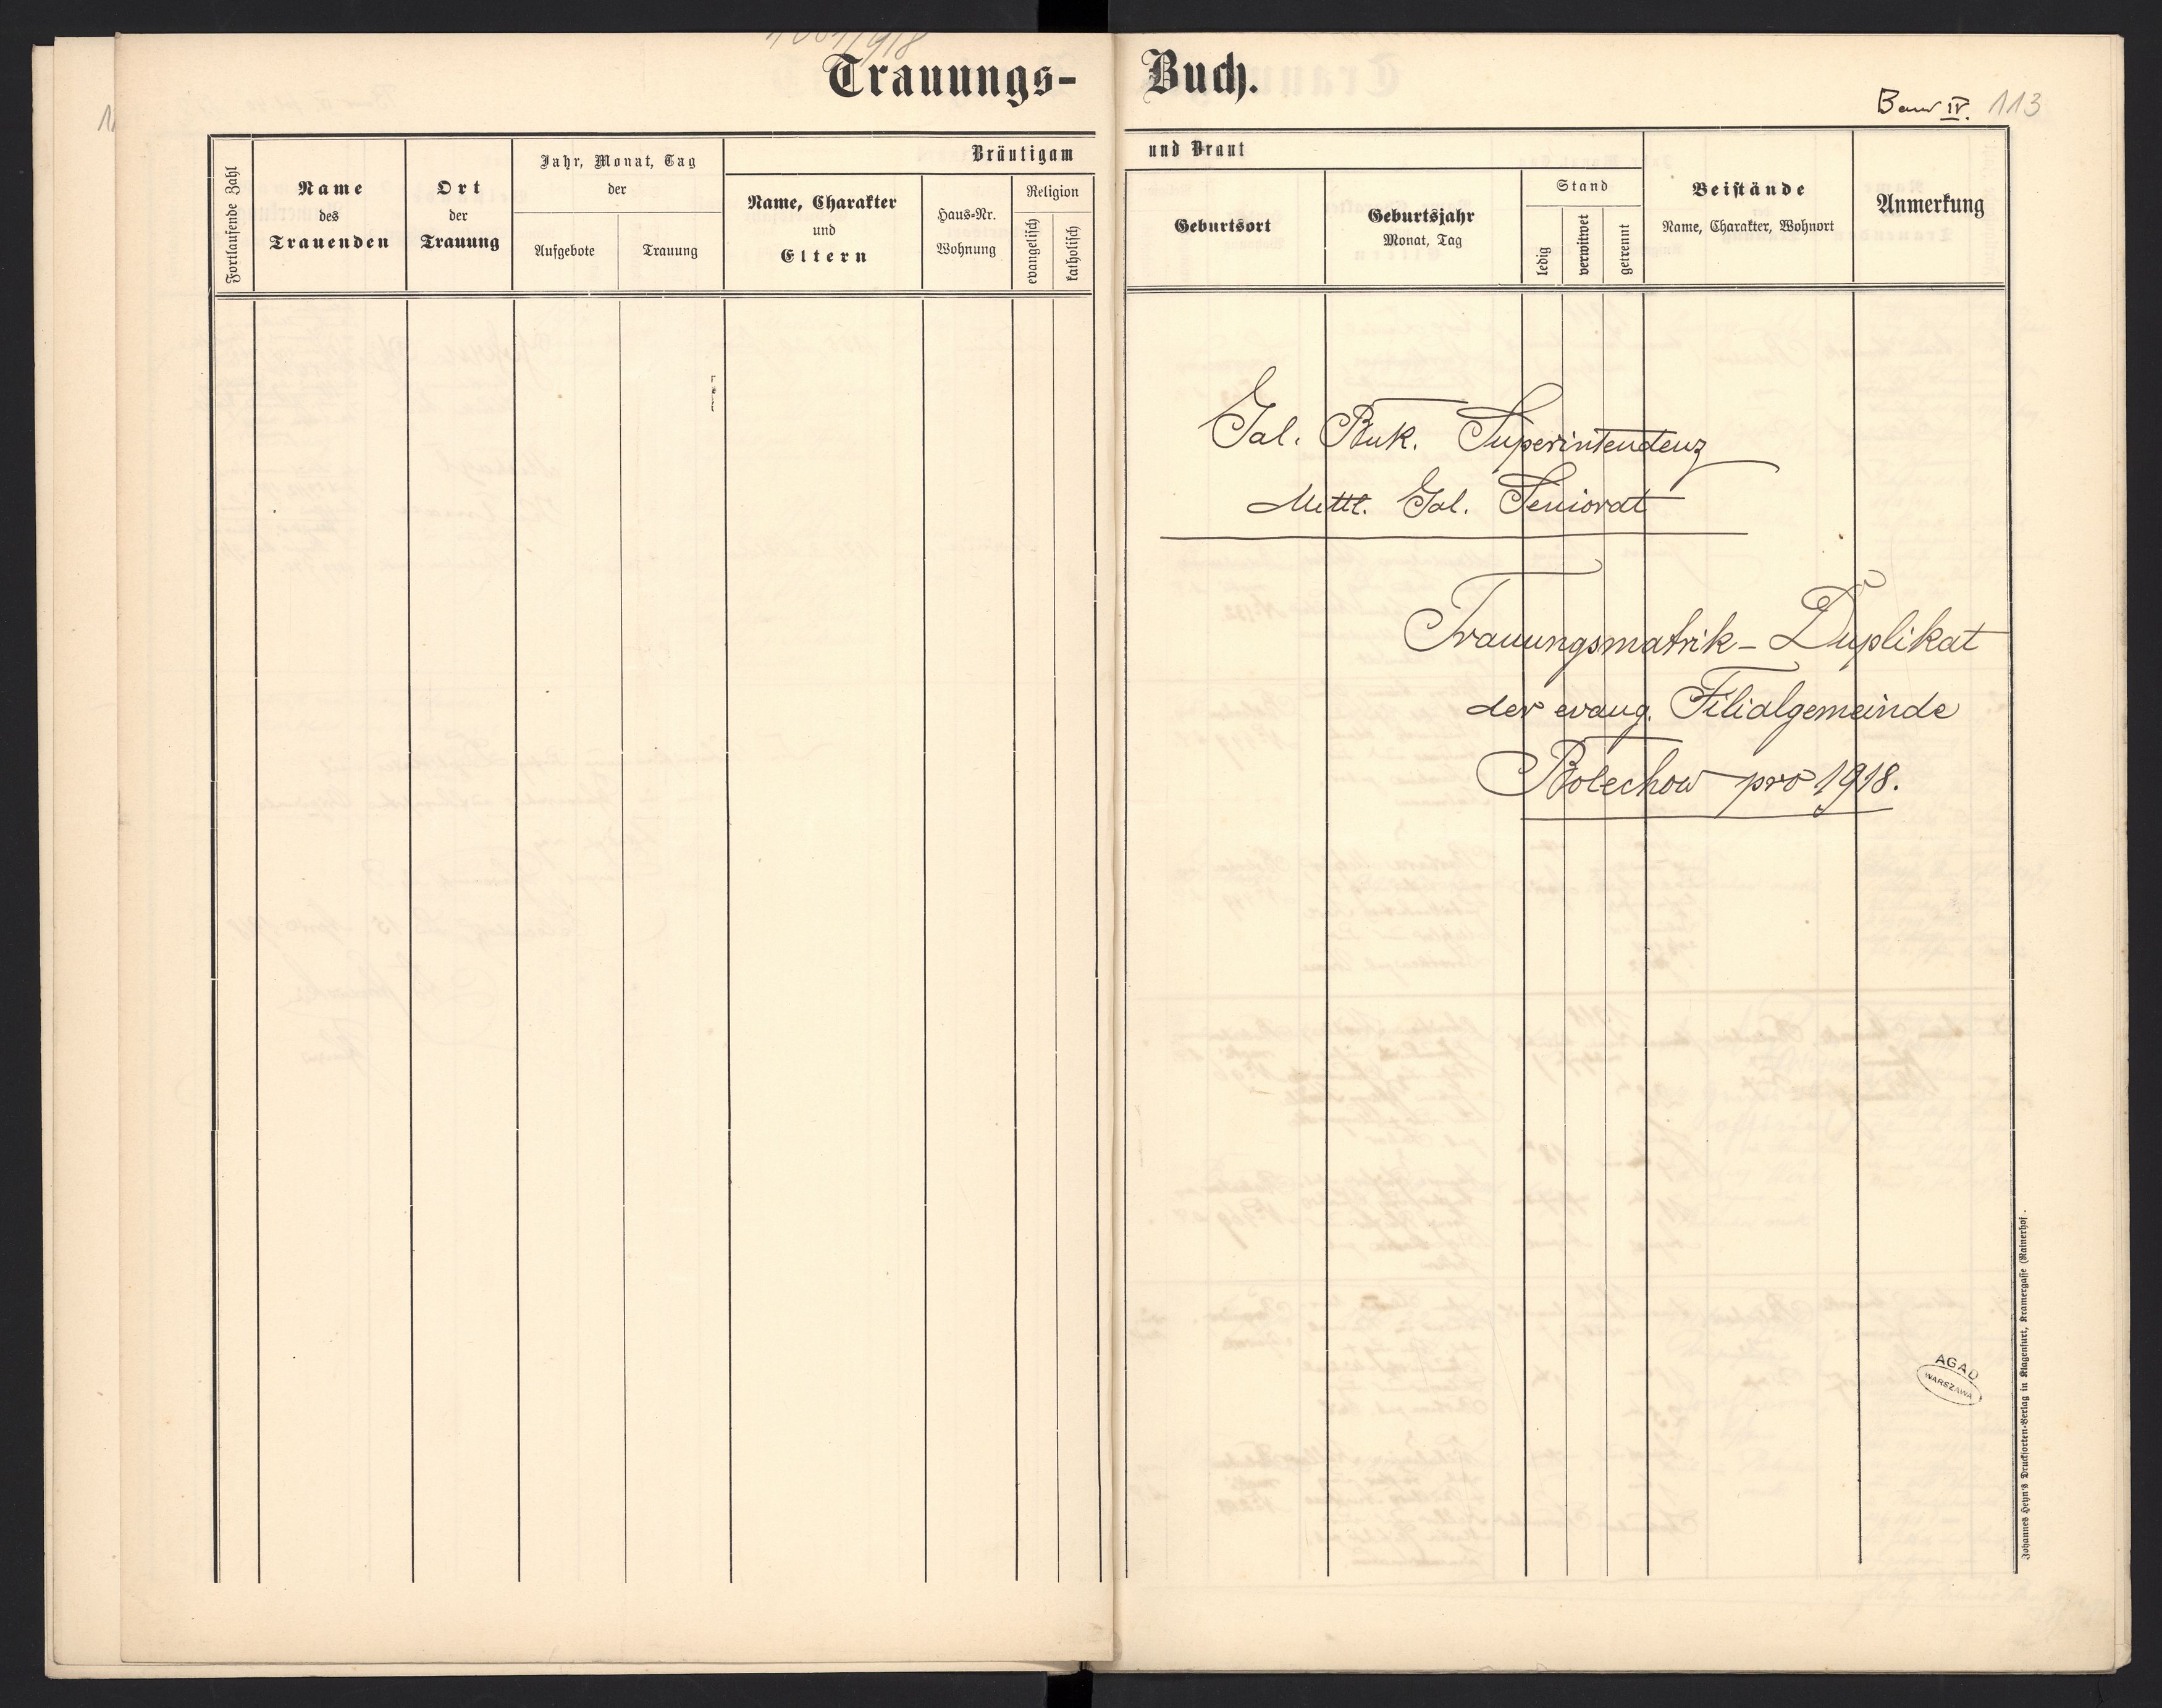 Trauungs- Buch.
Band IV. 113
Fortlaufende Zahl
Name
des
Trauenden
Ort
der
Trauung
Jahr, Monat, Tag
der
Aufgebote
Trauung
Bräutigam
Name, Charakter
und
Eltern
Haus-Nr.
Wohnung
Religion
evangelisch
katholisch
und Braut
Geburtsort
Geburtsjahr
Monat, Tag
Stand
ledig
verwitwet
getrennt
Beistände
Name, Charakter, Wohnort
Anmerkung
Gal. Buk. Superintendenz
Mittl. Gal. Seniorat
Trauungsmatrik-Duplikat
der evang. Filialgemeinde
Bolechow pro 1918.
AGAD
WARSZAWA
Johannes Heyn's Drucksorten-Verlag in Klagenfurt, Kramergasse (Rainerhof.